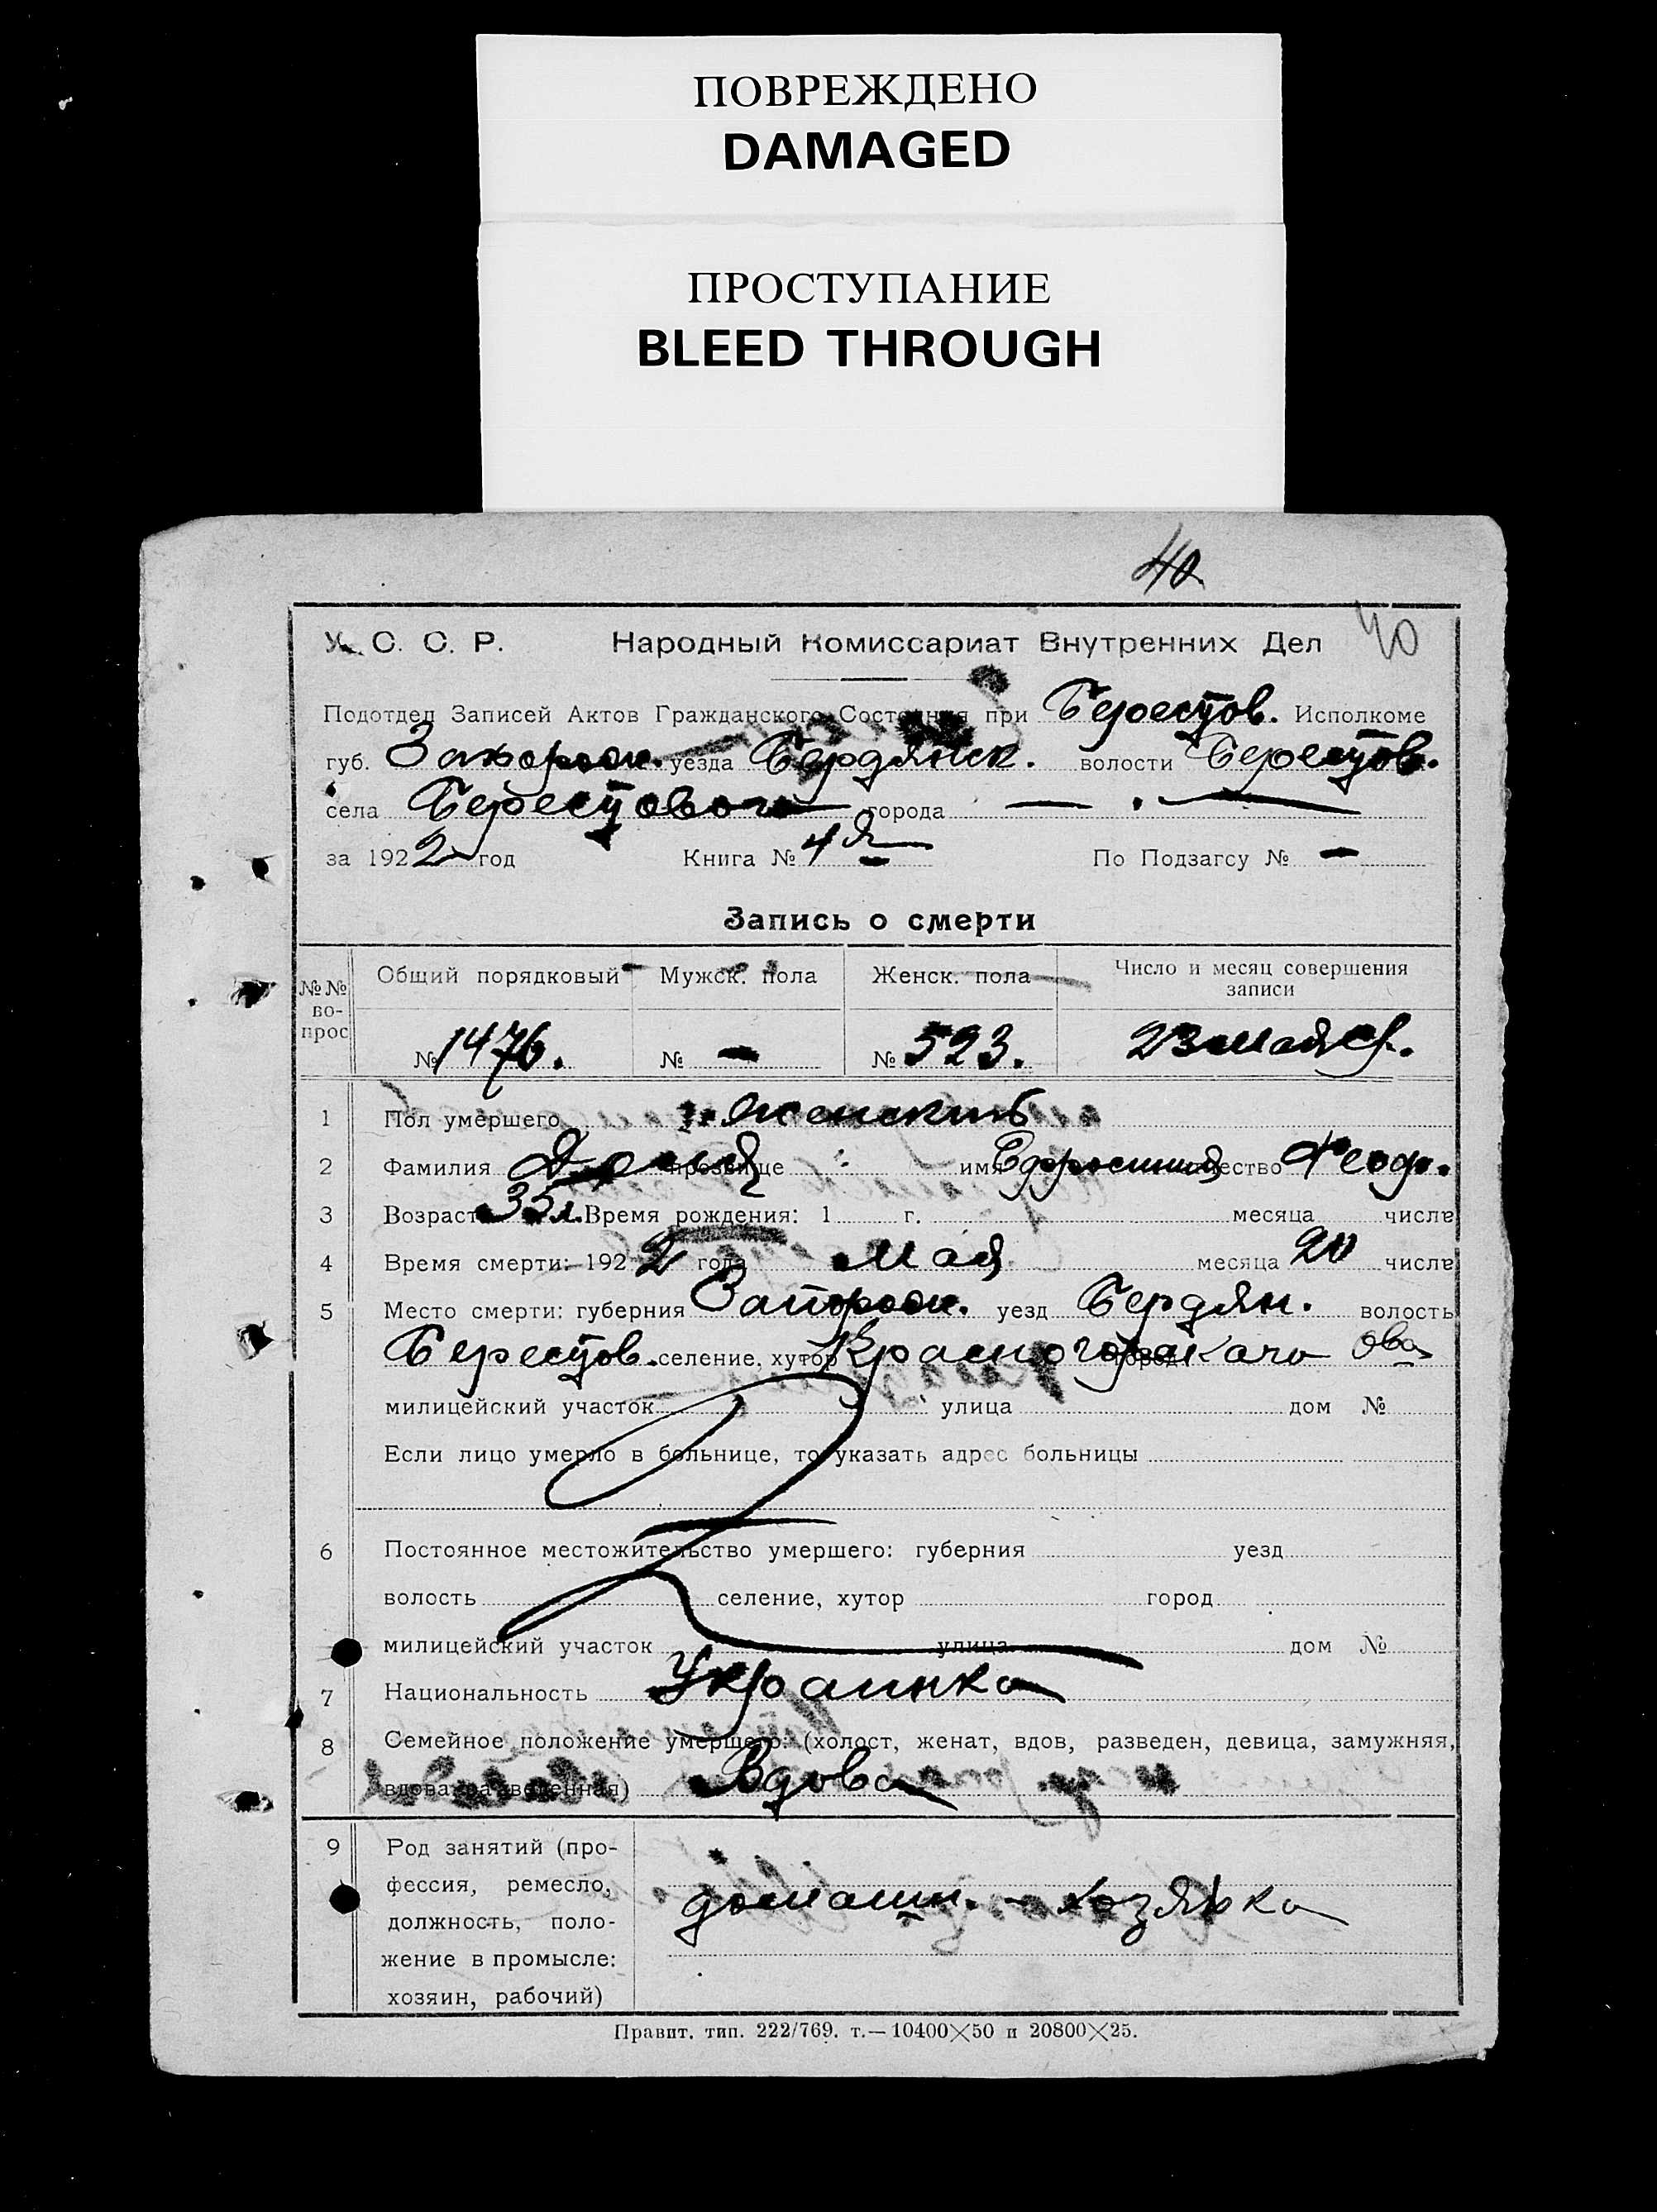 ПОВРЕЖДЕНО
DAMAGED
ПРОСТУПАНИЕ
BLEED THROUGH
40
40
У. С. С. Р. Народный Комиссариат Внутренних Дел
Подотдел Записей Актов Гражданского Состояния при Берестов. Исполкоме
губ. Запорож. уезда Бердянск. волости Берестов.
села Берестового города — . —
за 1922 год Книга № 4я По Подзагсу № —
Запись о смерти
№№ вопрос Общий порядковый Мужск. пола Женск. пола Число и месяц совершения записи
№ 1476. № — № 523. 23 мая
1 Пол умершего женский
2 Фамилия прозвище имя Ефросиния отчество Феод.
3 Возраст 35 л. Время рождения: 1 г. месяца числа
4 Время смерти: 1922 года мая месяца 20 числа
5 Место смерти: губерния Запорож. уезд Бердян. волость
Берестов. селение, хутор город
милицейский участок улица дом №
Если лицо умерло в больнице, то указать адрес больницы
6 Постоянное местожительство умершего: губерния уезд
волость селение, хутор город
милицейский участок улица дом №
7 Национальность Украинка
8 Семейное положение умершего: (холост, женат, вдов, разведен, девица, замужняя,
вдова, разведенная) Вдова
9 Род занятий (про-
фессия, ремесло,
должность, поло- домашн. - хозяйка
жение в промысле:
хозяин, рабочий)
Правит. тип. 222/769. т.— 10400×50 и 20800×25.